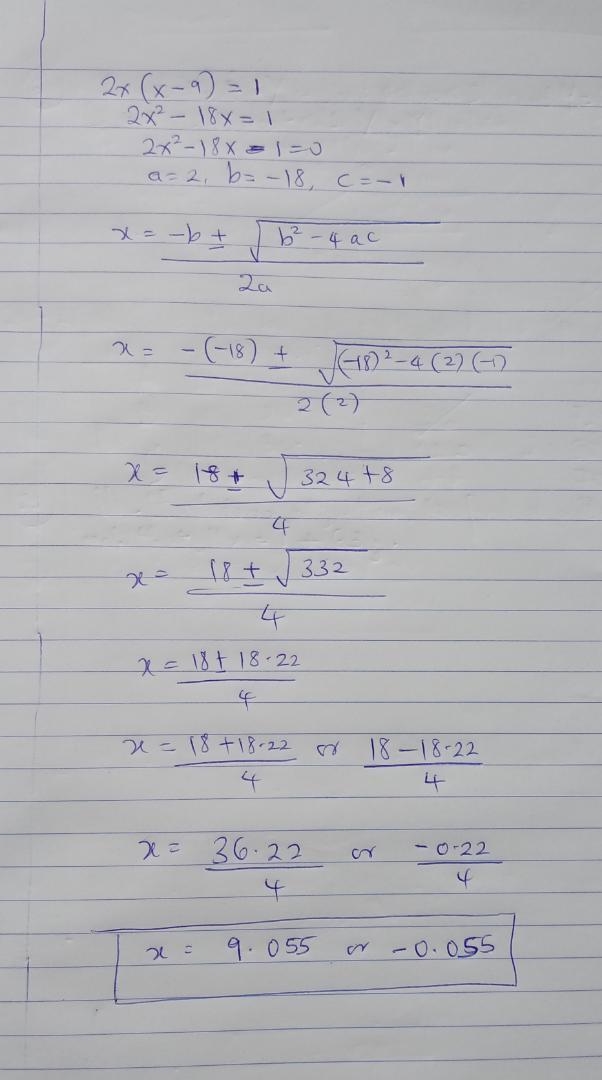 2x (x-9) = 1
2x² - 18x = 1
2x² - 18x - 1 = 0
a = 2, b = -18, c = -1
x = -b ± √b² - 4ac
2a
x = -(-18) ± √(-18)² - 4(2)(-1)
2(2)
x = 18 ± √324 + 8
4
x = 18 ± √332
4
x = 18 ± 18.22
4
x = 18 + 18.22 or 18 - 18.22
4 4
x = 36.22 or -0.22
4 4
x = 9.055 or -0.055